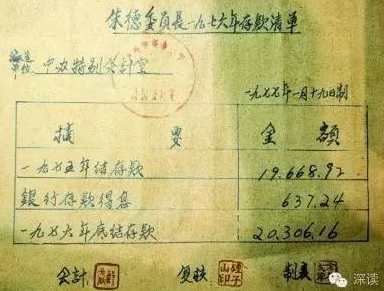 朱德委員長一九七六年存款清单
编造单位：中办特别会计室
一九七七年一月十九日制
摘要 金額
一九七五年结存款 19.668.92
銀行存款得息 637.24
一九七六年底结存款 20.306.16
会計 复核 制表
深读